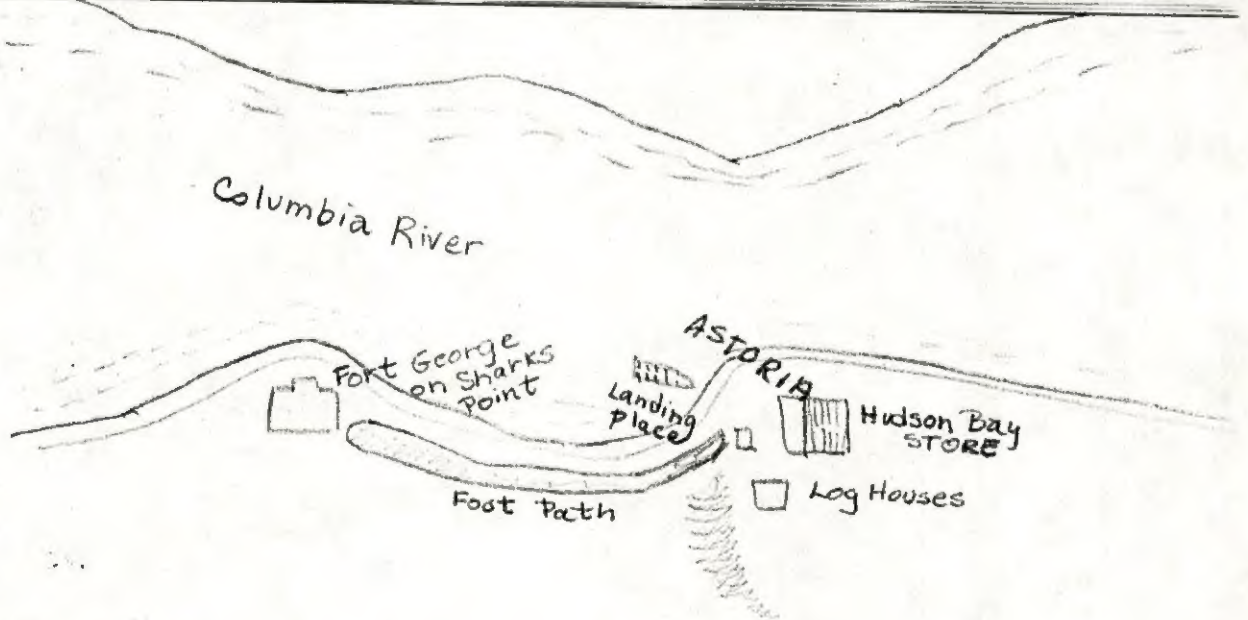 Columbia River
Fort George
on Sharks
Point
ASTORIA
Landing
Place
Hudson Bay
STORE
Log Houses
Foot Path